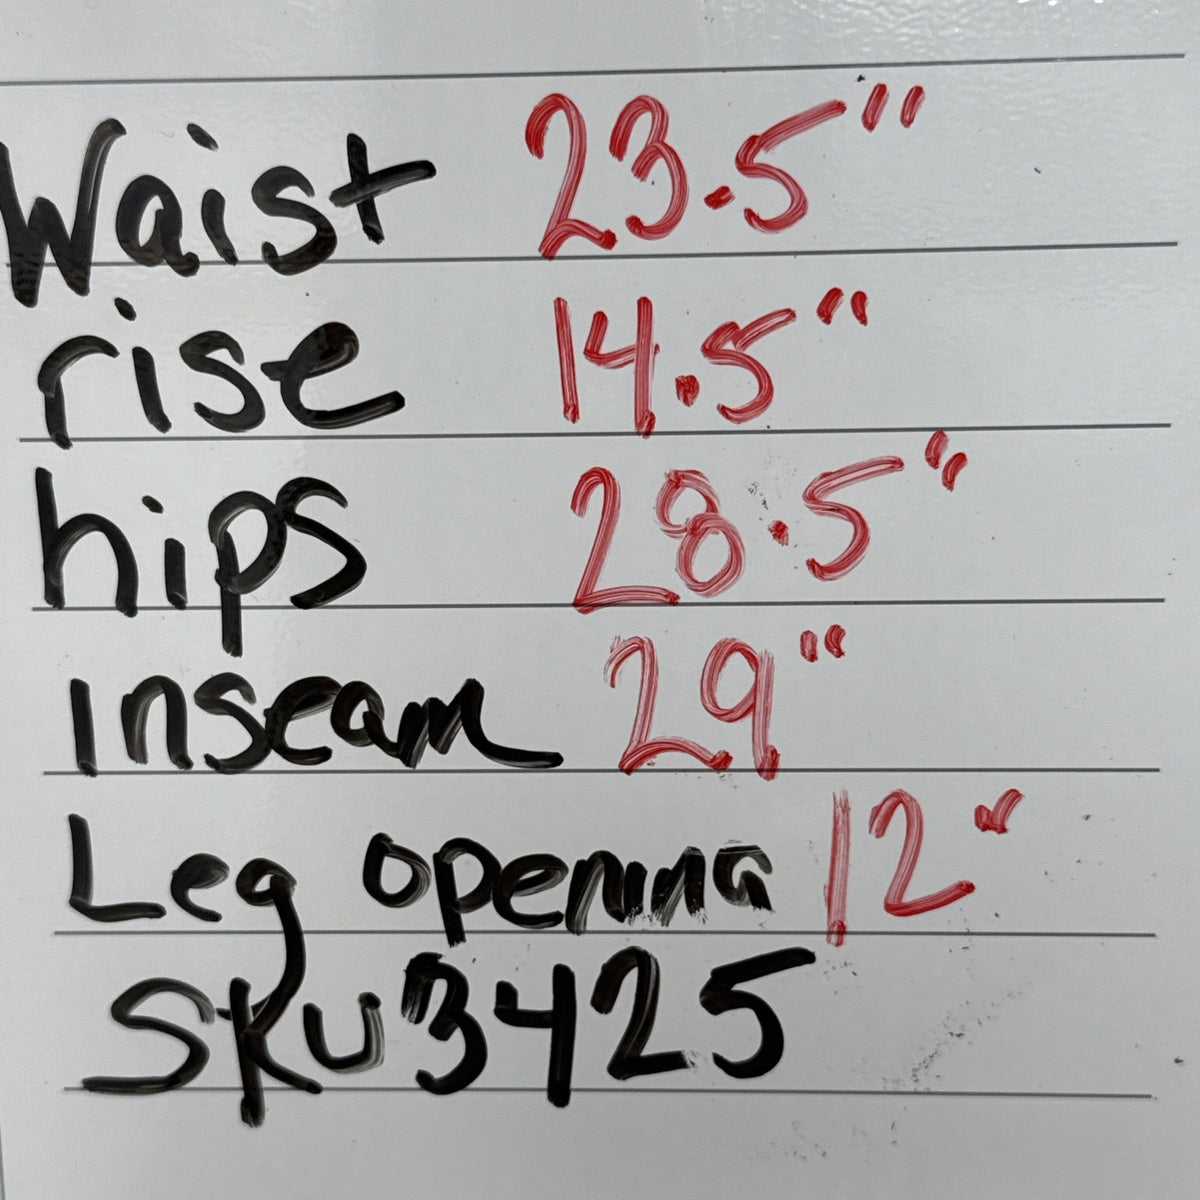 Waist 23.5"
rise 14.5"
hips 28.5"
Inseam 29"
Leg opening 12"
SKU3425